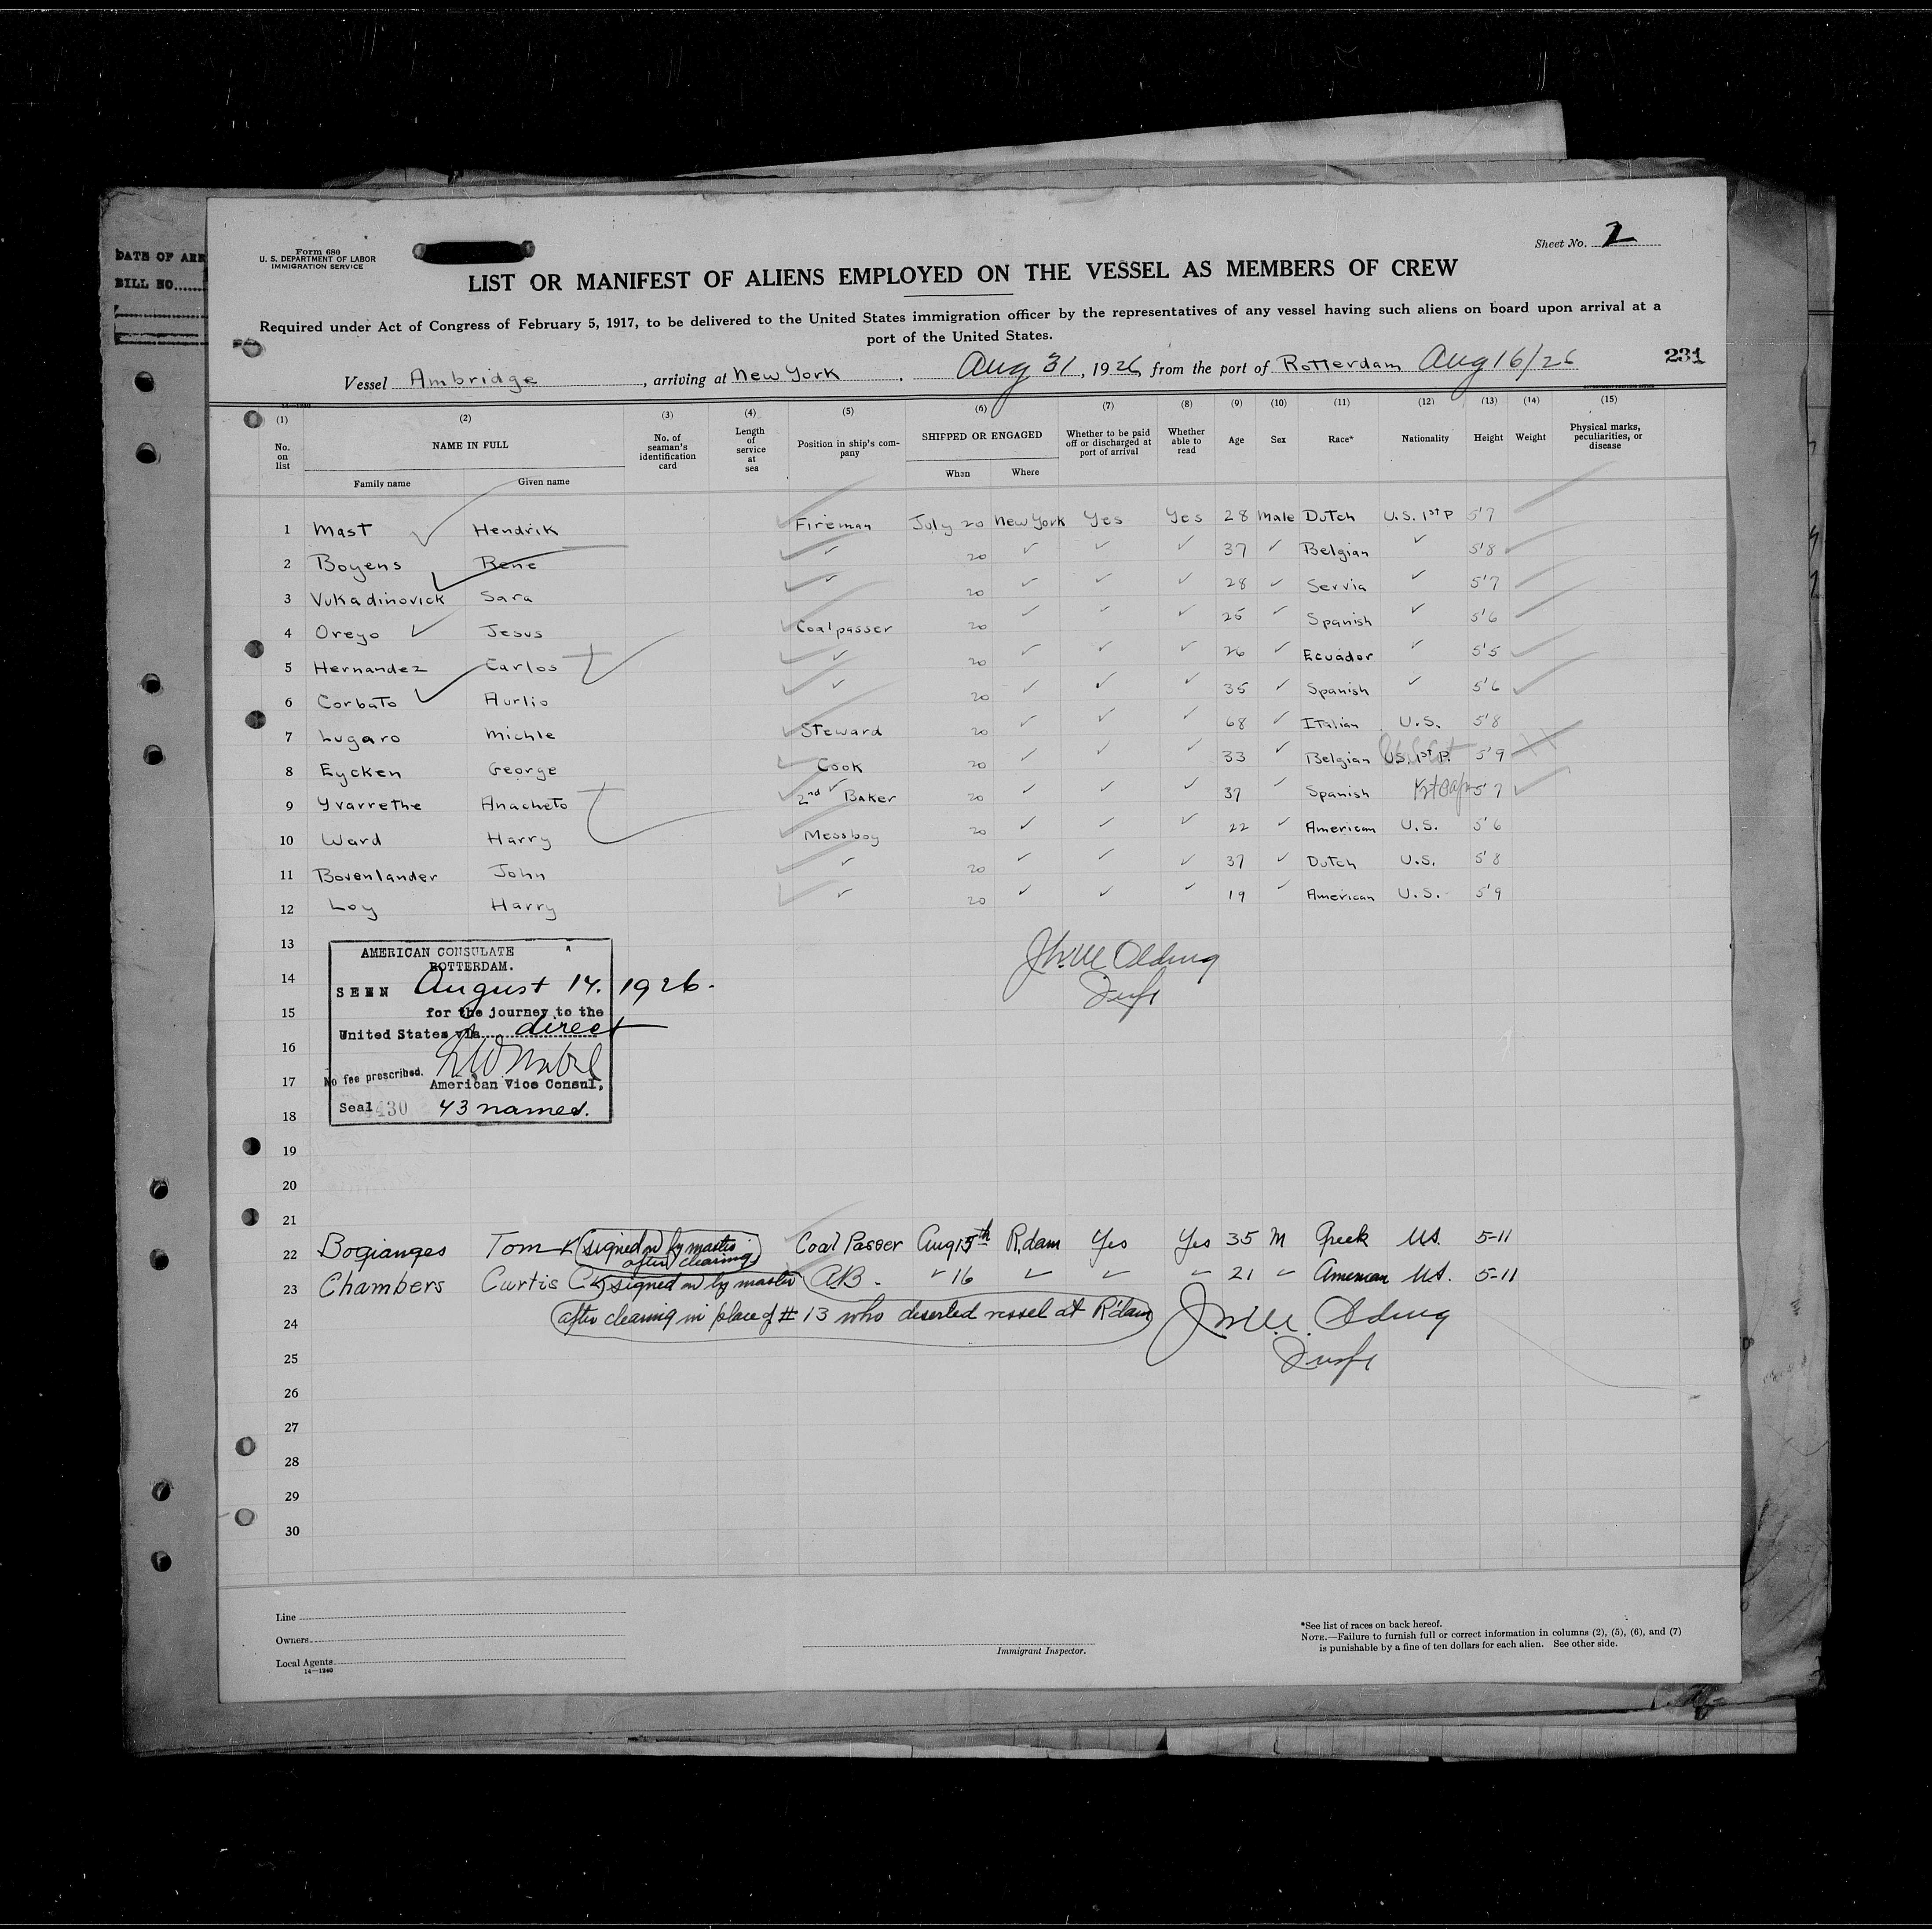 DATE OF ARR
BILL NO......
Form 680
U. S. DEPARTMENT OF LABOR
IMMIGRATION SERVICE
Sheet No. 2
LIST OR MANIFEST OF ALIENS EMPLOYED ON THE VESSEL AS MEMBERS OF CREW
Required under Act of Congress of February 5, 1917, to be delivered to the United States immigration officer by the representatives of any vessel having such aliens on board upon arrival at a
port of the United States.
231
Vessel Ambridge, arriving at New York, Aug 31, 1926, from the port of Rotterdam Aug 16/26
(1) (2) (3) (4) (5) (6) (7) (8) (9) (10) (11) (12) (13) (14) (15)
No. on list NAME IN FULL Family name Given name No. of seaman's identification card Length of service at sea Position in ship's company SHIPPED OR ENGAGED When Where Whether to be paid off or discharged at port of arrival Whether able to read Age Sex Race* Nationality Height Weight Physical marks, peculiarities, or disease
1 Mast Hendrik Fireman July 20 New York Yes Yes 28 Male Dutch U.S. 1st P 5'7
2 Boyens Rene ✓ 20 ✓ ✓ ✓ 37 ✓ Belgian ✓ 5'8
3 Vukadinovick Sara ✓ 20 ✓ ✓ ✓ 28 ✓ Servia ✓ 5'7
4 Oreyo Jesus Coalpasser 20 ✓ ✓ ✓ 25 ✓ Spanish ✓ 5'6
5 Hernandez Carlos ✓ 20 ✓ ✓ ✓ 26 ✓ Ecuador ✓ 5'5
6 Corbato Aurlio ✓ 20 ✓ ✓ ✓ 35 ✓ Spanish ✓ 5'6
7 Lugaro Michle Steward 20 ✓ ✓ ✓ 68 ✓ Italian U.S. 5'8
8 Eycken George Cook 20 ✓ ✓ ✓ 33 ✓ Belgian U.S. 1st P. 5'9
9 Yvarrethe Anacheto 2nd ✓ Baker 20 ✓ ✓ ✓ 37 ✓ Spanish 5'7
10 Ward Harry Messboy 20 ✓ ✓ ✓ 22 ✓ American U.S. 5'6
11 Bovenlander John ✓ 20 ✓ ✓ ✓ 37 ✓ Dutch U.S. 5'8
12 Loy Harry ✓ 20 ✓ ✓ ✓ 19 ✓ American U.S. 5'9
13
14
15
16
17
18
AMERICAN CONSULATE
ROTTERDAM.
SEEN August 14. 1926.
for the journey to the
United States via direct
No fee prescribed.
American Vice Consul,
Seal 430 43 named.
Olding
19
20
21
22 Bogianges Tom (signed on by master after clearing) Coal Passer Aug 15th R,dam Yes Yes 35 M Greek U.S. 5-11
23 Chambers Curtis C (signed on by master A.B. ✓ 16 ✓ ✓ ✓ 21 ✓ American U.S. 5-11
24 after clearing in place of # 13 who deserted vessel at R'dam) Olding
25
26
27
28
29
30
Line
Owners
Local Agents
14—1240
Immigrant Inspector.
*See list of races on back hereof.
NOTE.—Failure to furnish full or correct information in columns (2), (5), (6), and (7)
is punishable by a fine of ten dollars for each alien. See other side.